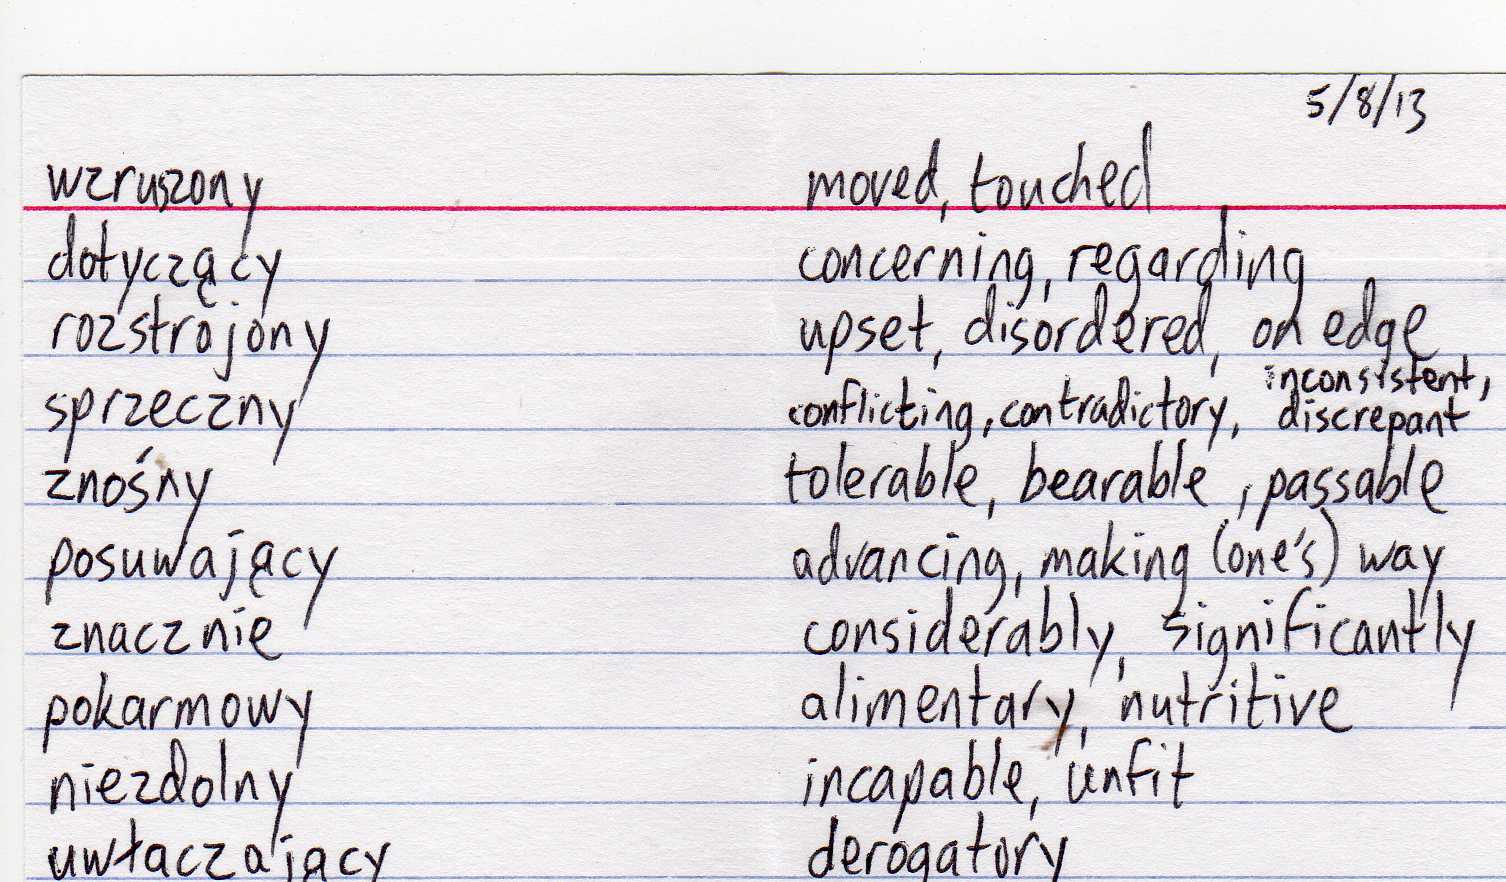 5/8/13
wzruszony moved, touched
dotyczący concerning, regarding
rozstrojony upset, disordered, on edge
sprzeczny conflicting, contradictory, inconsistent, discrepant
znośny tolerable, bearable, passable
posuwający advancing, making (one's) way
znacznie considerably, significantly
pokarmowy alimentary, nutritive
niezdolny incapable, unfit
uwłaczający derogatory